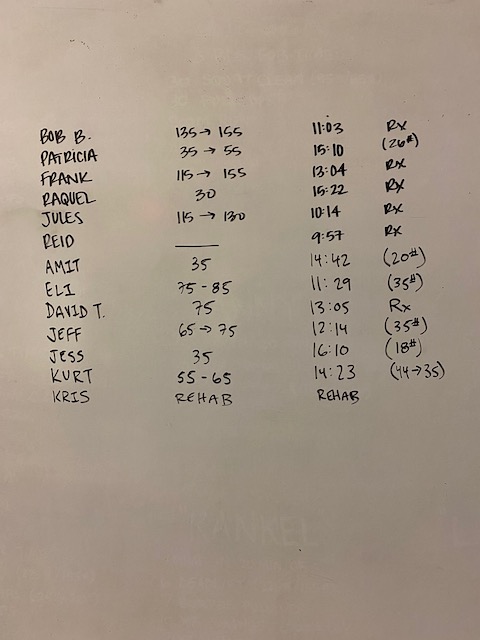 BOB B. 135→155 11:03 Rx
PATRICIA 35→55 15:10 (26#)
FRANK 115→155 13:04 Rx
RAQUEL 30 15:22 Rx
JULES 115→130 10:14 Rx
REID —— 9:57 Rx
AMIT 35 14:42 (20#)
ELI 75-85 11:29 (35#)
DAVID T. 75 13:05 Rx
JEFF 65→75 12:14 (35#)
JESS 35 16:10 (18#)
KURT 55-65 14:23 (44→35)
KRIS REHAB REHAB